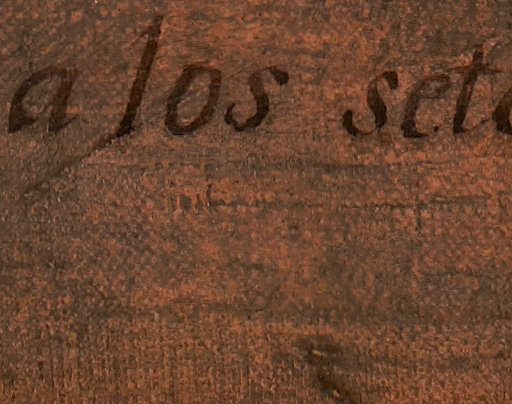 a los set